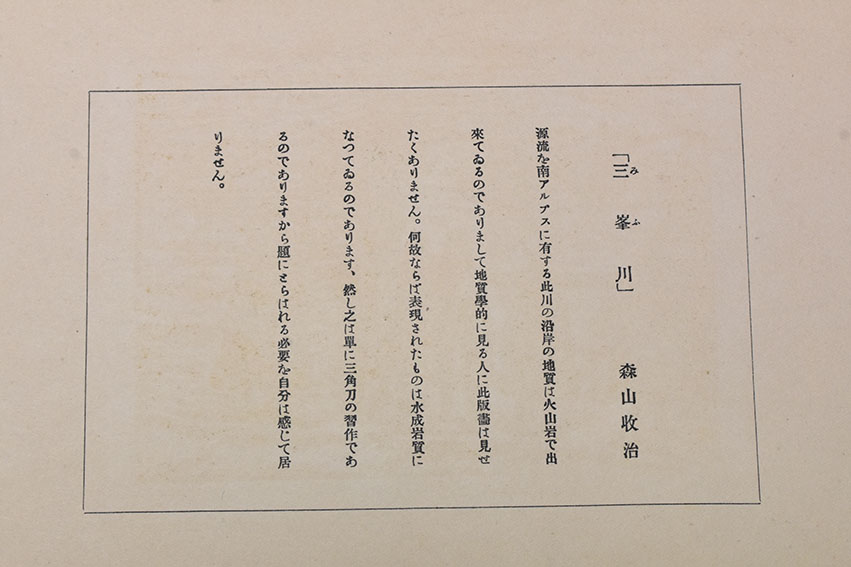 「三峯川」 森山收治
み ふ
源流を南アルプスに有する此川の沿岸の地質は火山岩で出
來てゐるのでありまして地質學的に見る人に此版畵は見せ
たくありません。何故ならば表現されたものは水成岩質に
なつてゐるのであります、然し之は單に三角刀の習作であ
るのでありますから題にとらはれる必要を自分は感じて居
りません。